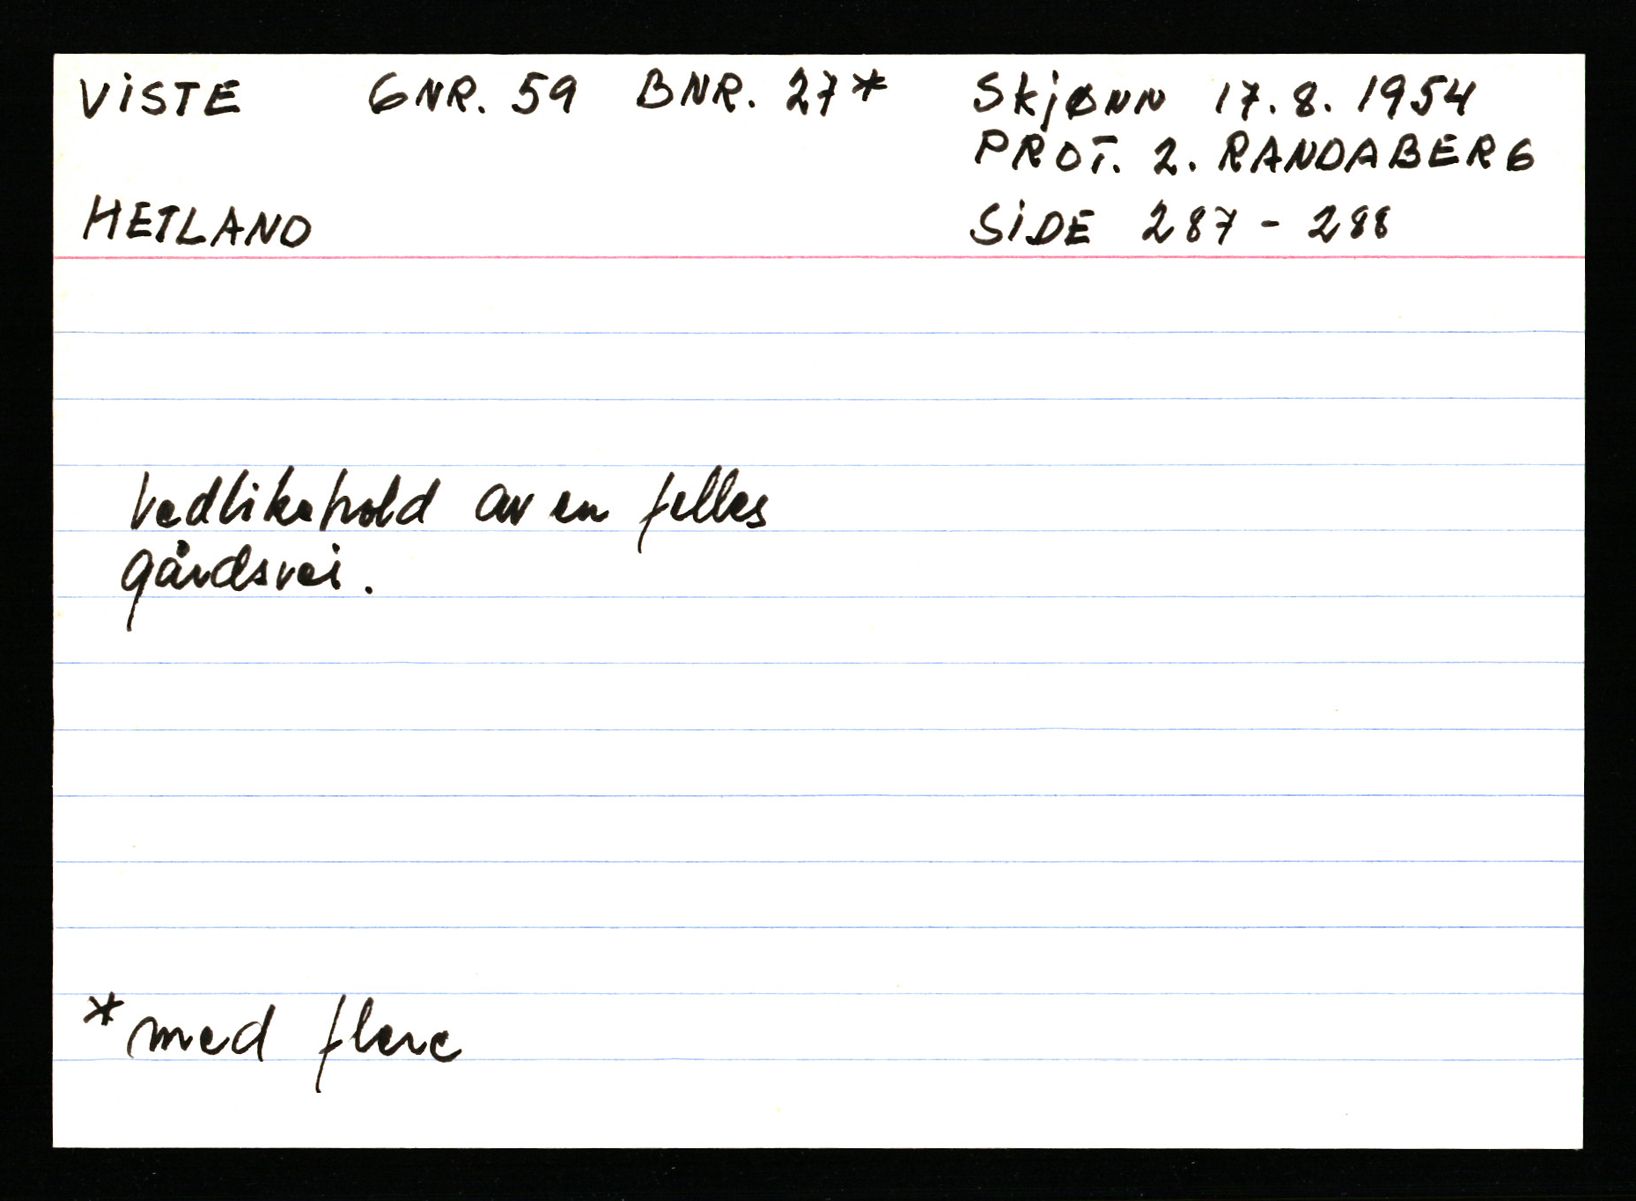 VISTE GNR. 59 BNR. 27* Skjønn 17.8.1954
PROT. 2. RANDABERG
HETLAND SIDE 287 - 288
Vedlikehold av en felles
gårdsvei.
* med flere